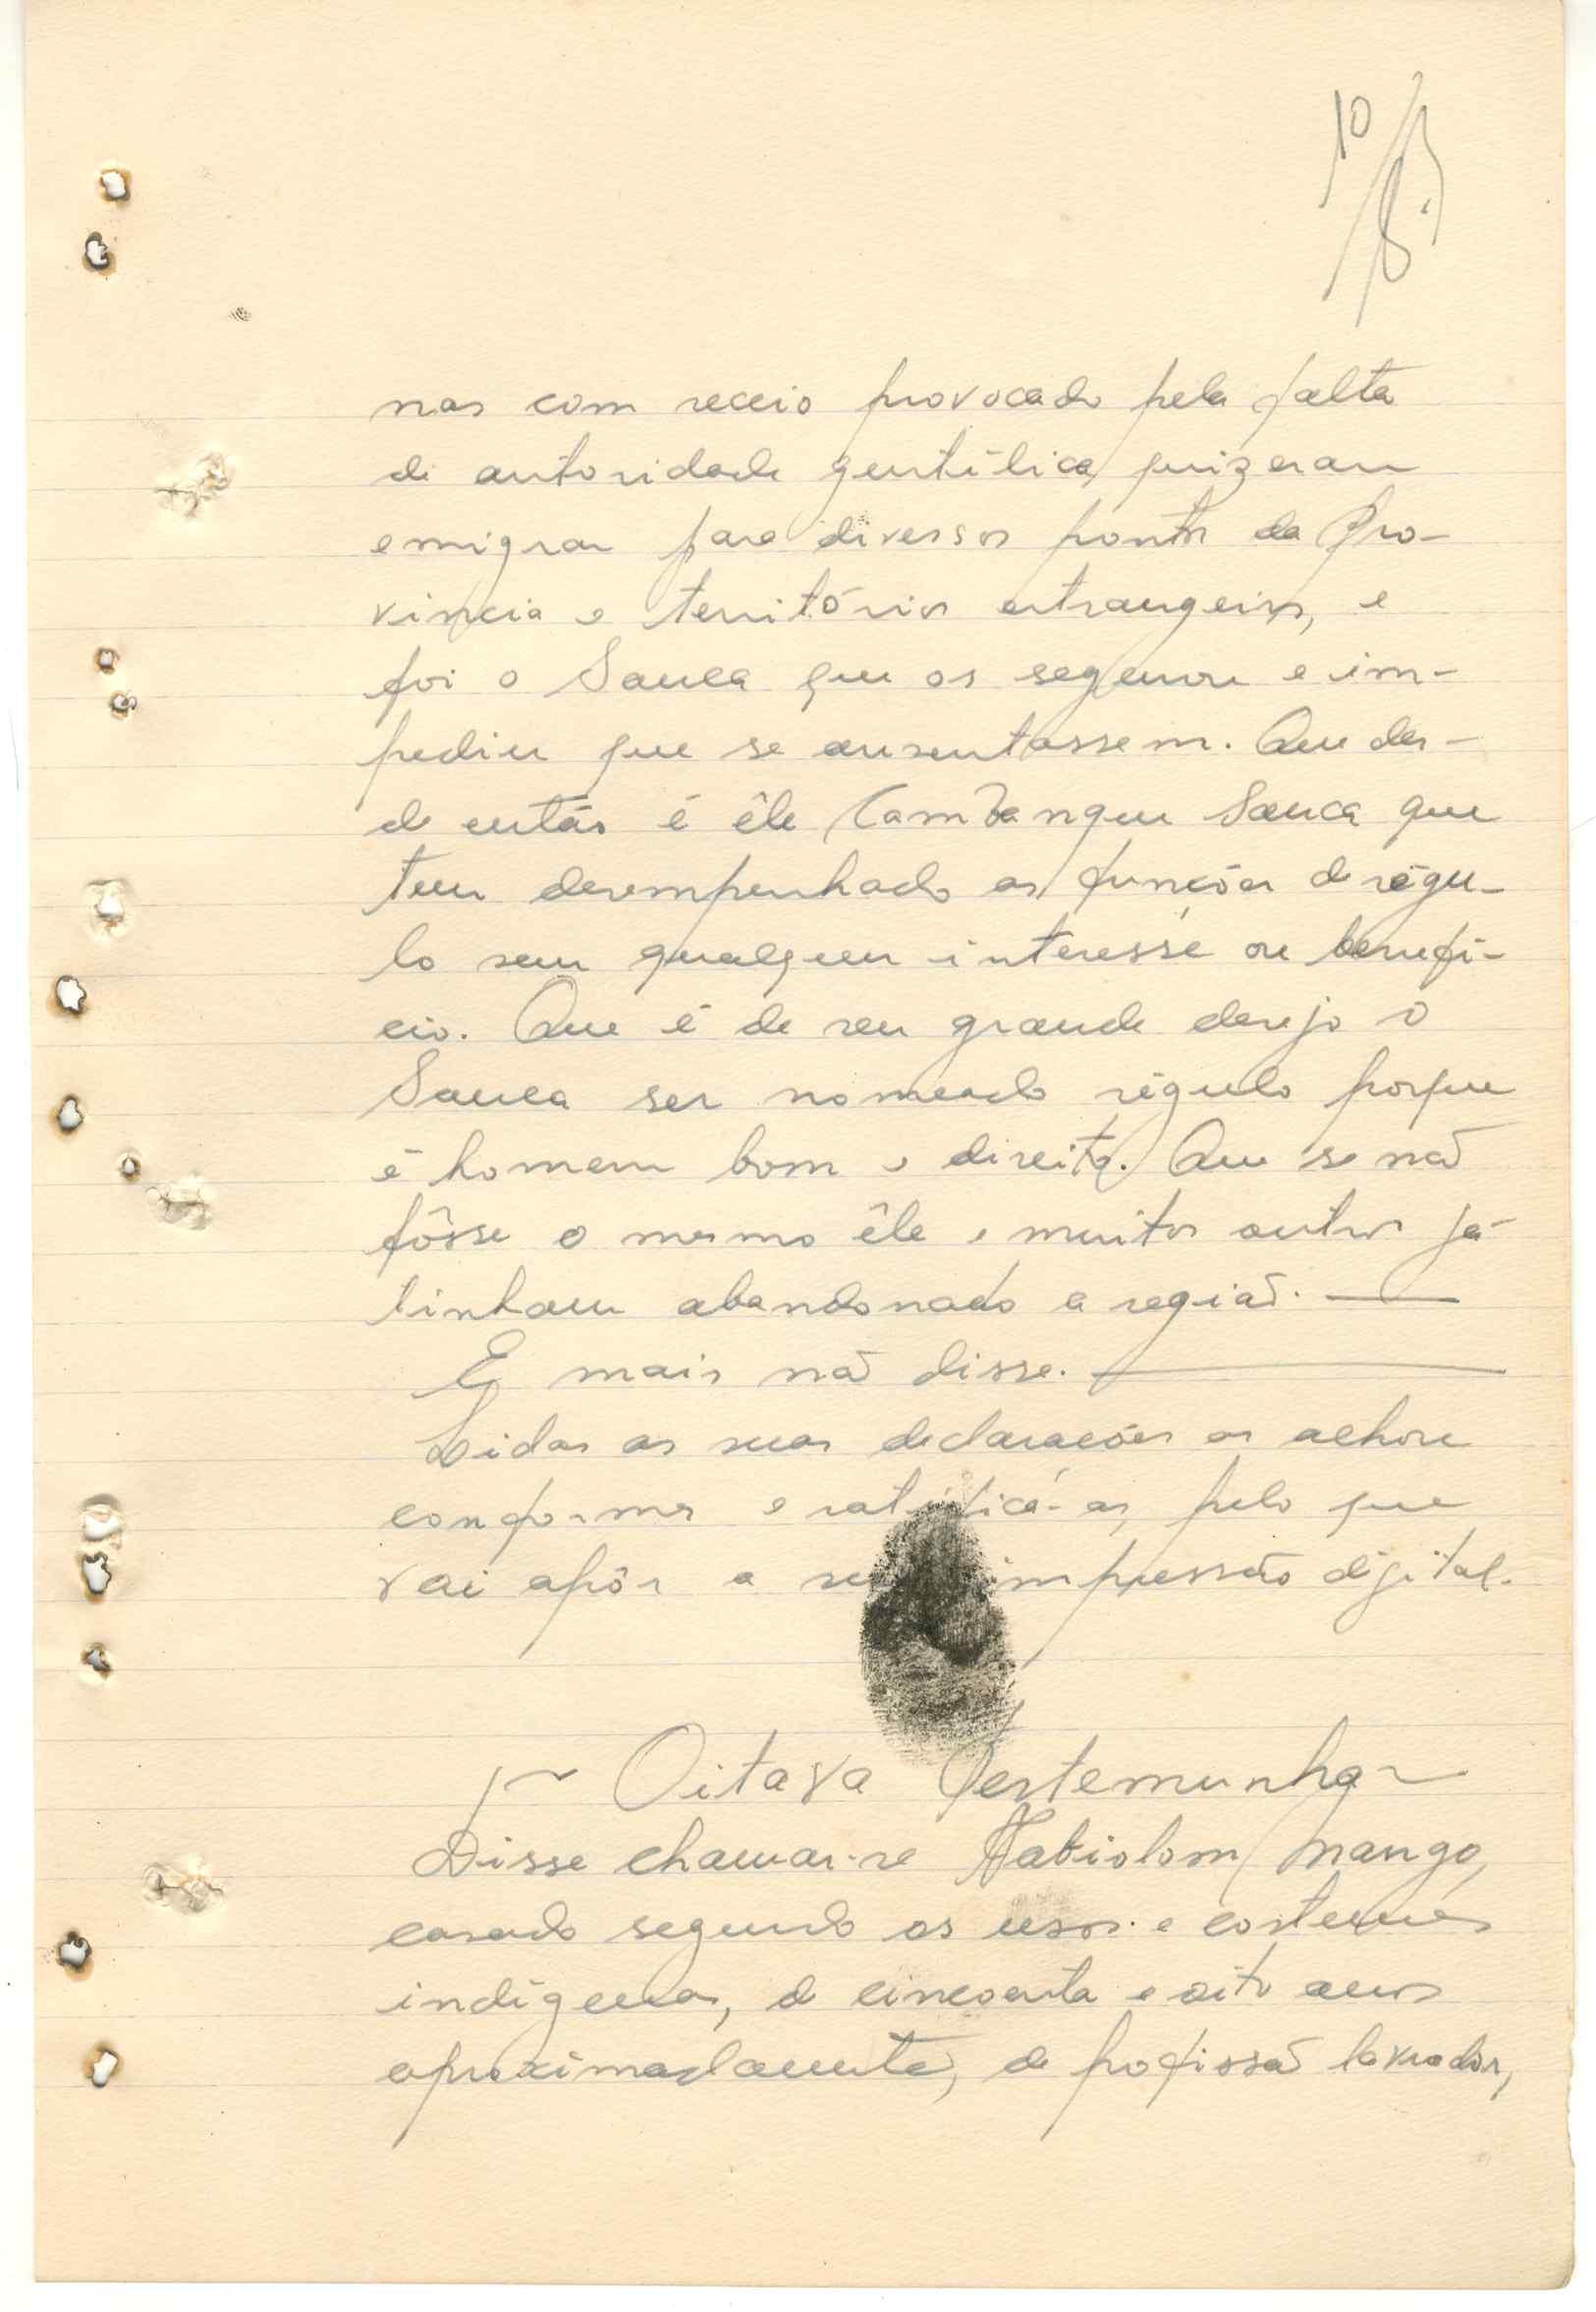 10
nas com receio provocado pela falta
de autoridade gentílica, quizeram
emigrar para diversos pontos da Pro-
víncia e territórios estrangeiros, e
foi o Sauca que os segurou e im-
pediu que se ausentassem. Que des-
de então é êle Cambanque Sauca que
tem desempenhado as funções de régu-
lo sem qualquer interesse ou benefí-
cio. Que é de seu grande desejo o
Sauca ser nomeado régulo porque
é homem bom e direito. Que se não
fôsse o mesmo êle e muitos outros já
tinham abandonado a região.
E mais não disse.
Lidas as suas declarações as achou
conformes e ratificá-as, pelo que
vai apôr a sua impressão digital.
Oitava Testemunha
Disse chamar-se Nabiolom Mango,
casado segundo os usos e costumes
indígenas, de cincoenta e oito anos
aproximadamente, de profissão lavrador,